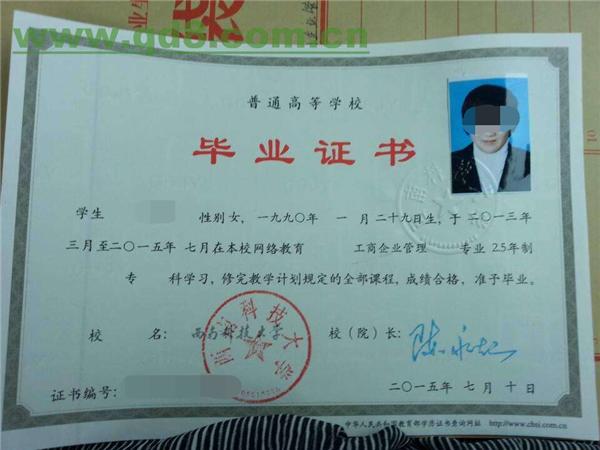 www.gd8.com.cn
普通高等学校
毕业证书
学生 性别女，一九九〇年 一月二十九日生，于二〇一三年
三月至二〇一五年 七月在本校网络教育 工商企业管理 专业 2.5年制
专 科学习，修完教学计划规定的全部课程，成绩合格，准予毕业。
校 名：西南科技大学 校（院）长：
证书编号： 二〇一五年 七月 十日
中华人民共和国教育部学历证书查询网址 http://www.chsi.com.cn